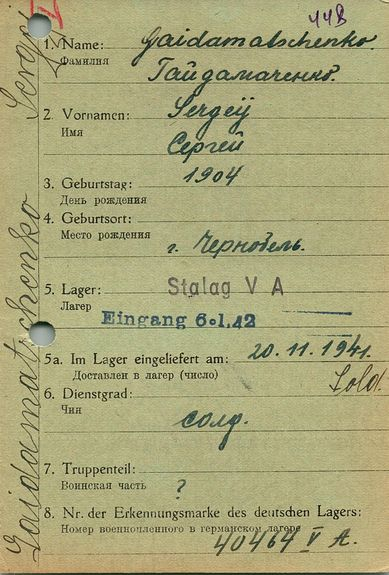 448
1. Name: Gaidamatschenko.
Фамилия
Гайдамаченко.
2. Vornamen: Sergeÿ
Имя
Сергей
3. Geburtstag: 1904
День рождения
4. Geburtsort:
Место рождения
г. Чернобель.
5. Lager: Stalag V A
Лагер
Eingang 6.1.42
5a. Im Lager eingeliefert am: 20.11.1941.
Доставлен в лагер (число)
6. Dienstgrad: Sold.
Чин
солд.
7. Truppenteil:
Воинская часть ?
8. Nr. der Erkennungsmarke des deutschen Lagers:
Номер военнопленного в германском лагере
40464 V A.
Gaidamatschenko Sergej